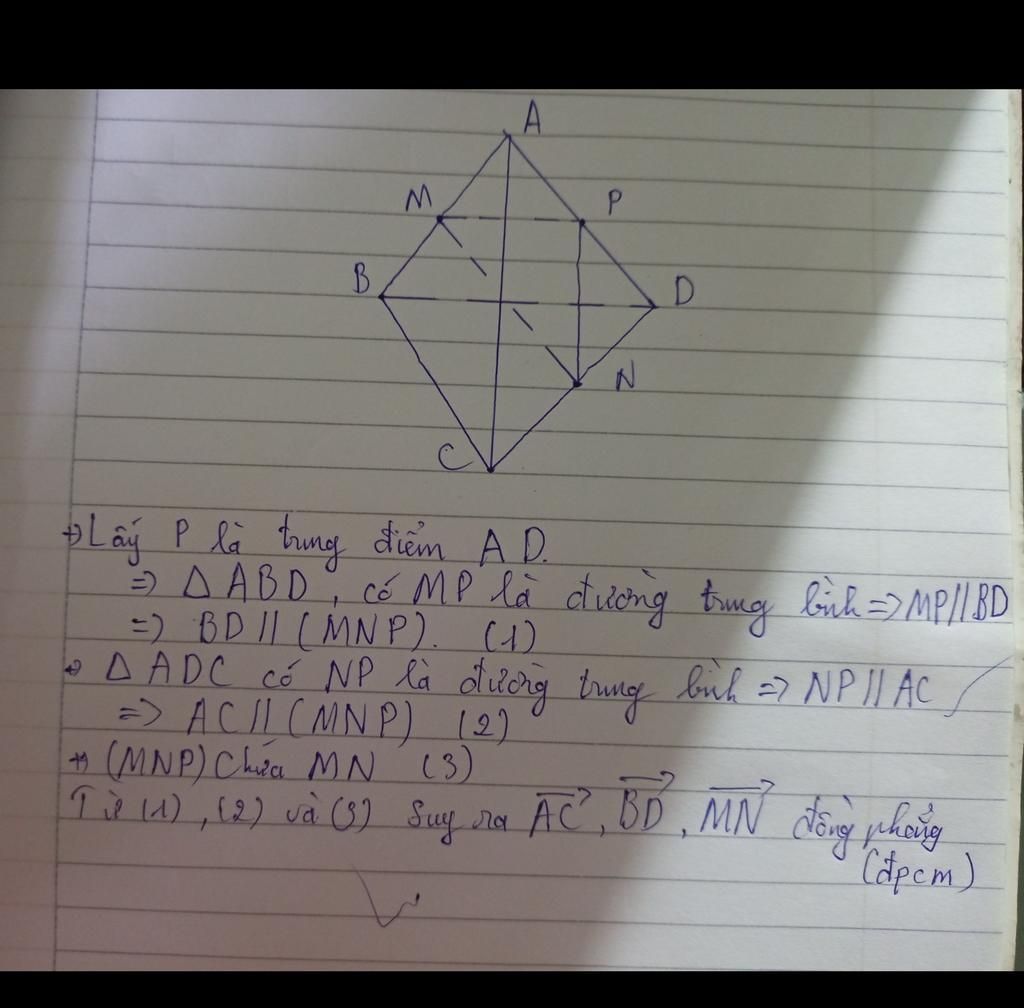 A
M
P
B
D
N
C
+) Lấy P là trung điểm AD.
=> △ABD, có MP là đường trung bình => MP//BD
=> BD // (MNP). (1)
+) △ADC có NP là đường trung bình => NP//AC
=> AC // (MNP) (2)
+) (MNP) chứa MN (3)
Từ (1), (2) và (3) suy ra $\overrightarrow{AC}$, $\overrightarrow{BD}$, $\overrightarrow{MN}$ đồng phẳng
(đpcm)